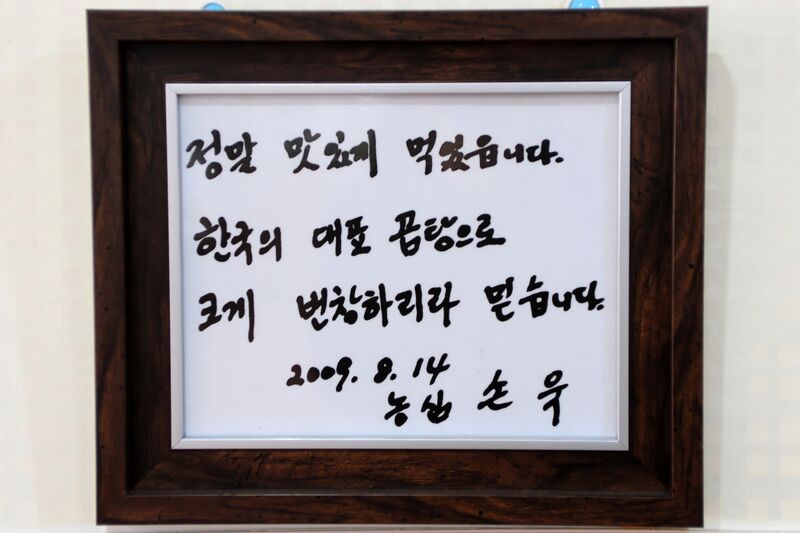 정말 맛있게 먹었읍니다.
한국의 대표 곰탕으로
크게 번창하리라 믿습니다.
2009. 8. 14
농심 손 욱